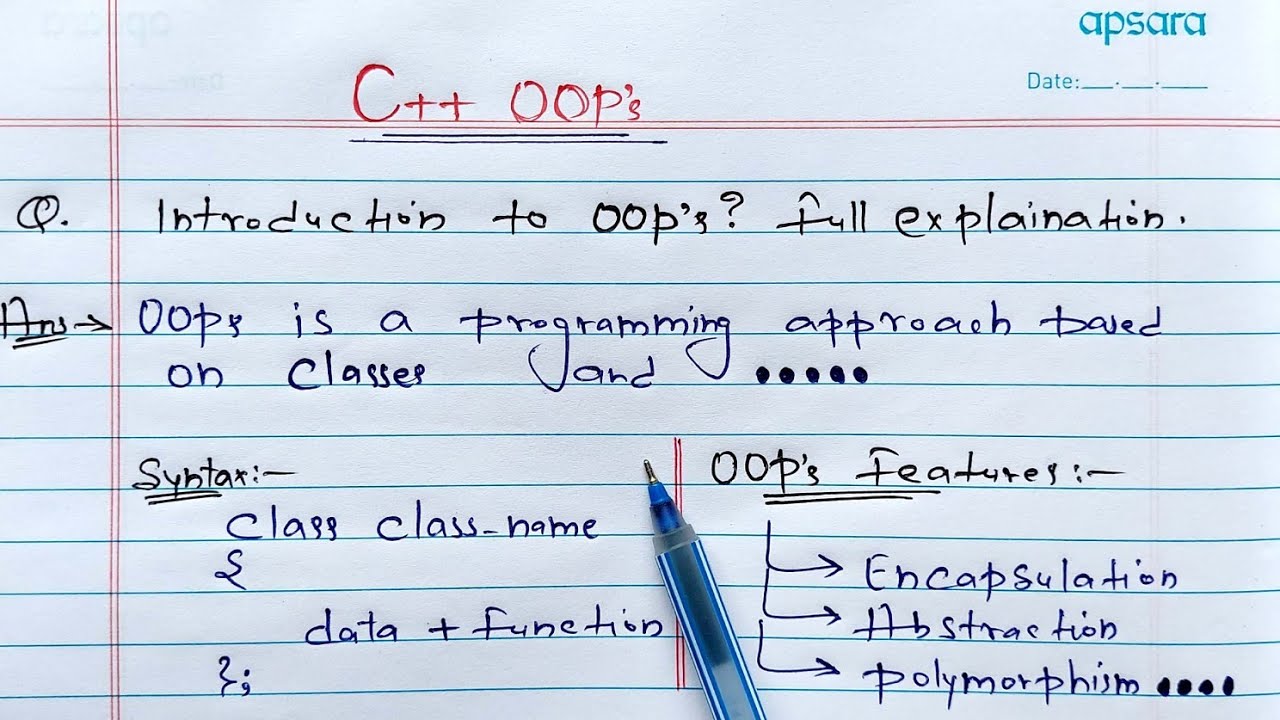 apsara
Date:__.__.__
C++ OOP's
Q. Introduction to OOP's? Full explaination.
Ans→ OOPs is a programming approach based
on Classes and •••••
Syntax:-
Class Class-name
{
data + Function
};
OOP's Features:-
→ Encapsulation
→ Abstraction
→ Polymorphism ••••